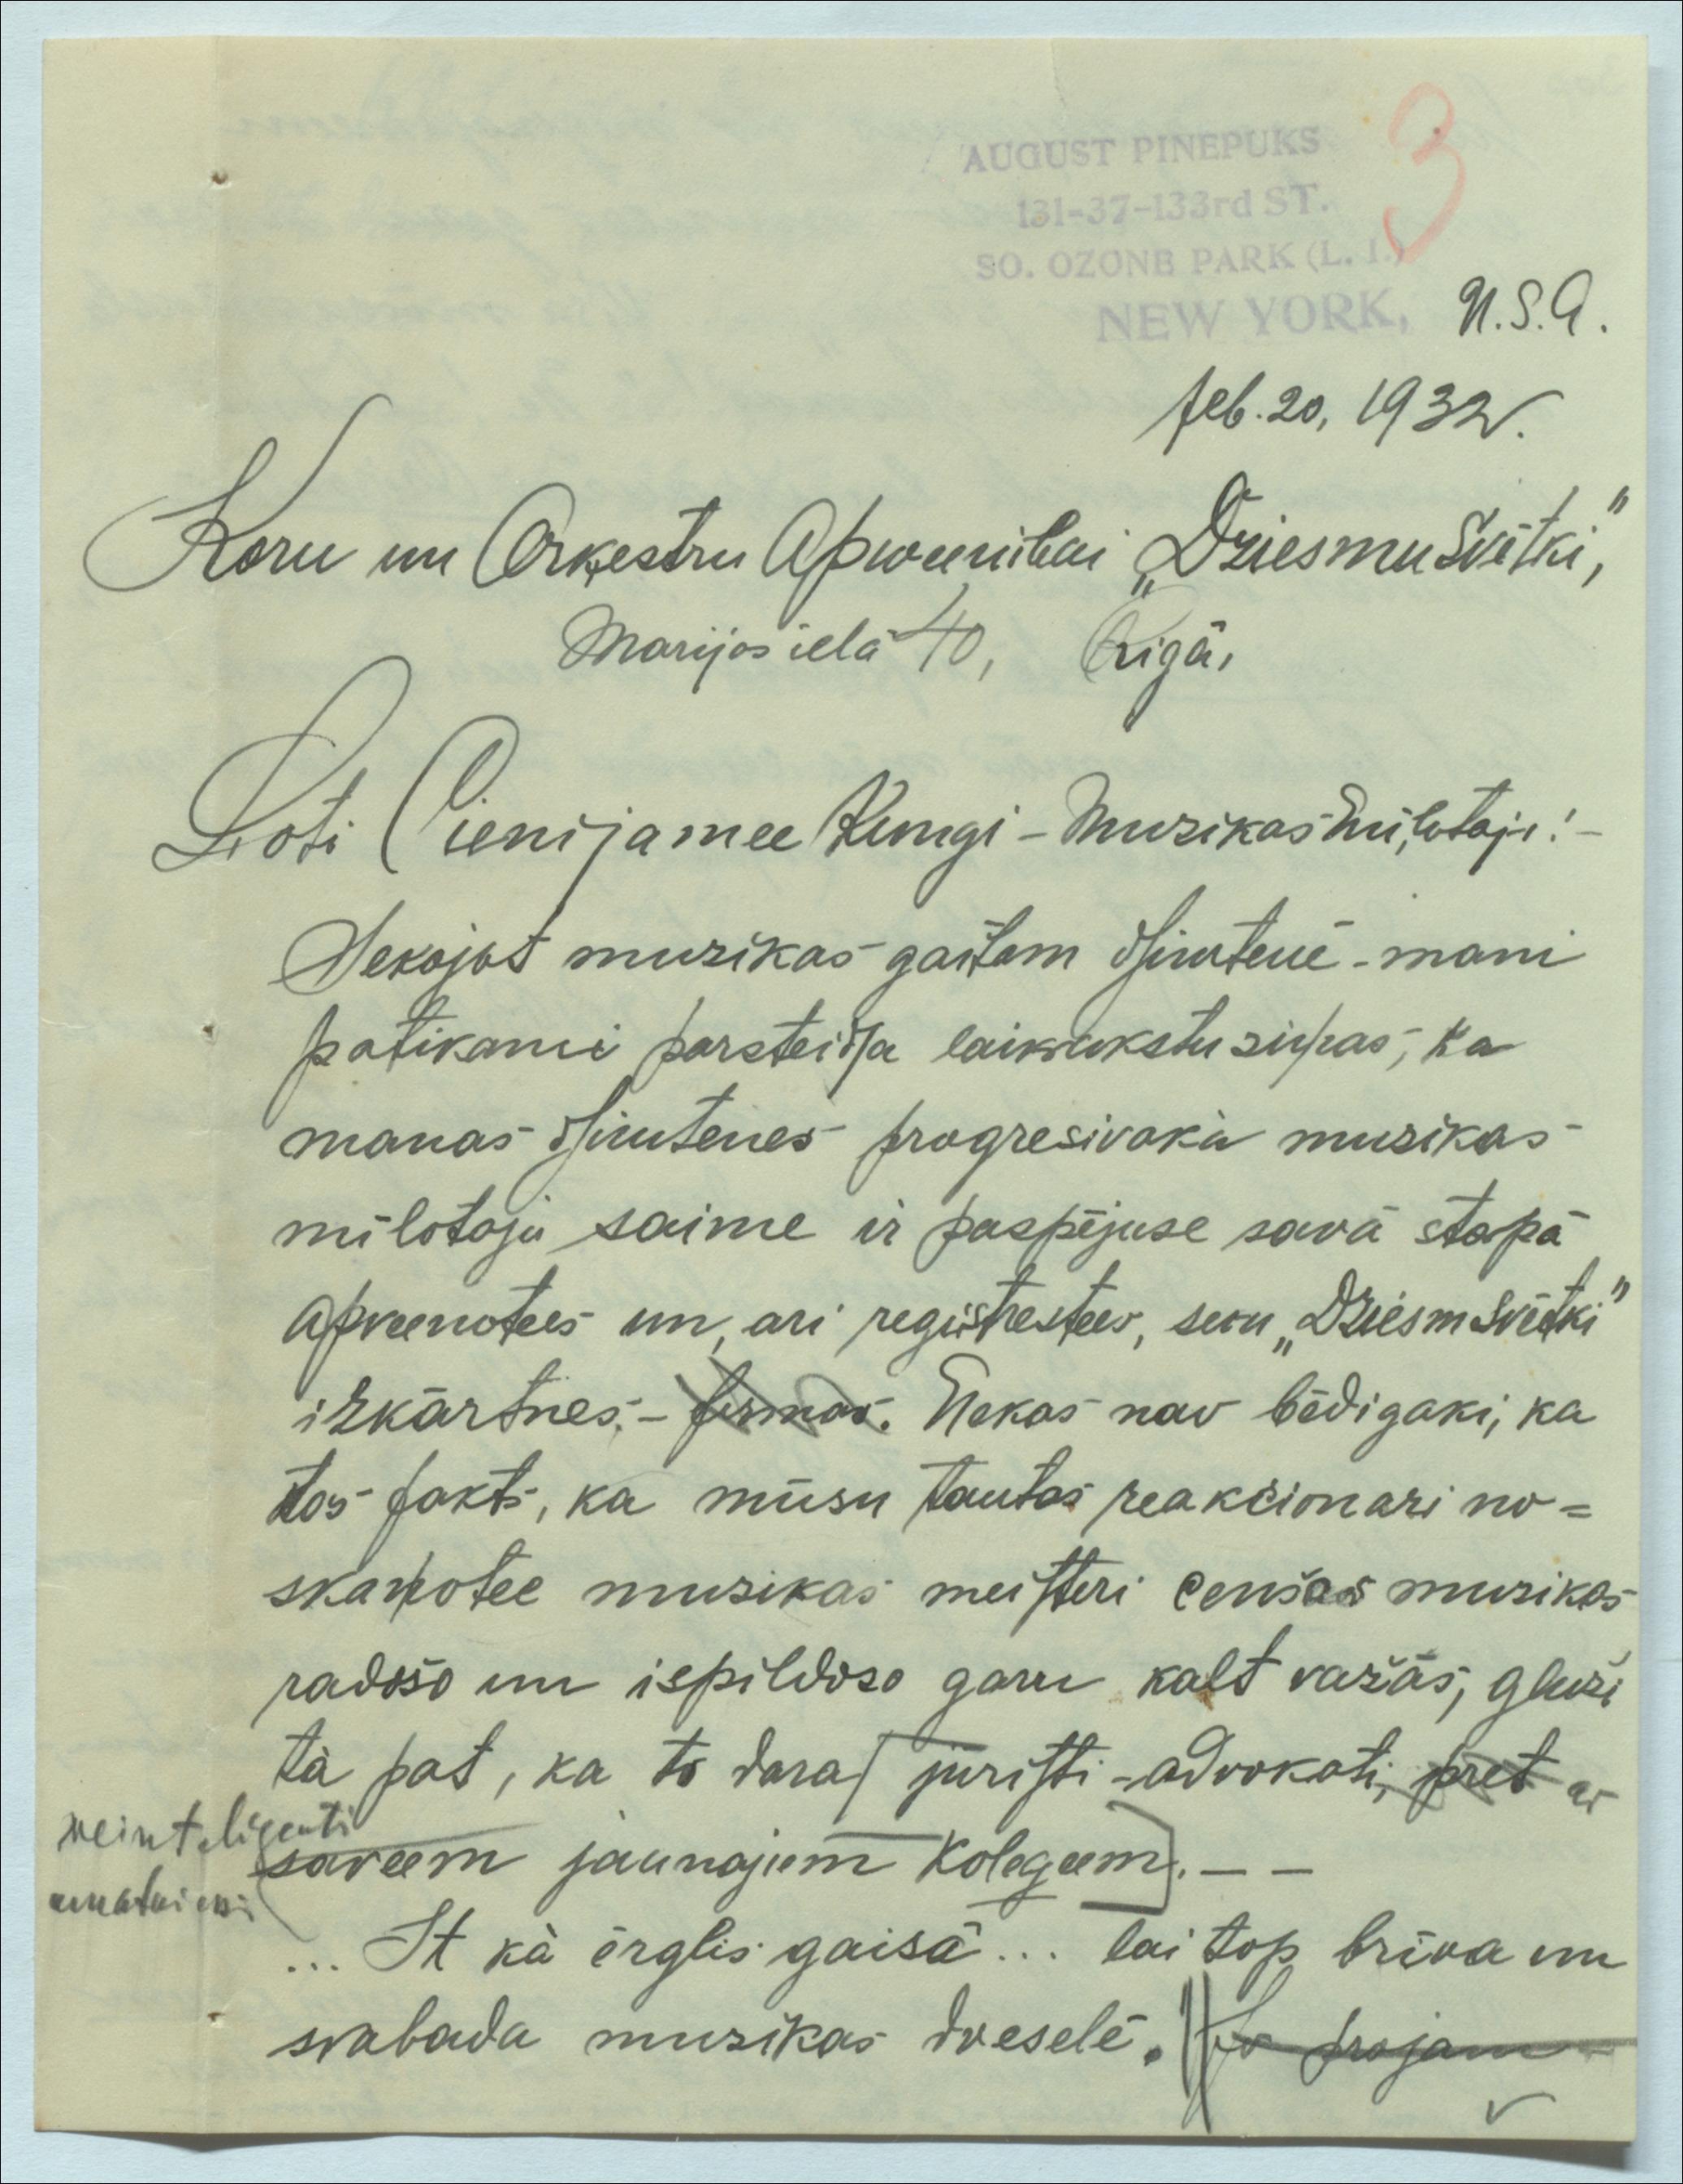 AUGUST PINEPUKS
3
131-37-133rd ST.
SO. OZONE PARK (L. I.)
NEW YORK, U.S.A.
feb. 20, 1932.
Koru un Orkestru Apweenibai „Dziesmu Svētki”,
Marijas ielā 40, Rigā,
Ļoti Cienijamee Kungi - Muzikas Mīlotaji! -
Sekojot muzikas gaitam dsimtenē - mani
patikami parsteidsa laikrakstu siņas, ka
manas dsimtenes progresivakà muzikas
mīlotaju saime ir paspējuse savā starpā
apveenotees un, ari registrestees, sem „Dziesm Svētki”
izkārtnes, - firmas. Nekas nav bēdigaki, ka
tas fakts, ka mūsu tautas reakcionari no=
skaņotee muzikas meisteri cenšas muzikas
radošo un ispildoso garu kalt važās, gluži
tā pat, ka to dara juristi - advokati, pret ar
neinteligenti
saveem jaunajiem kolegeem. - -
amatnieki
... It kà ērglis gaisā ... lai top brīva un
svabada muzikas dvesele. projam